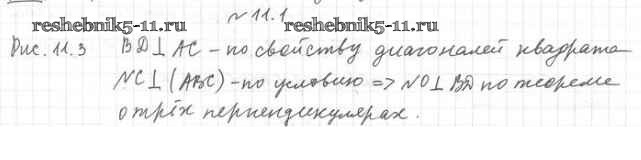 № 11.1
reshebnik5-11.ru reshebnik5-11.ru
Рис. 11.3 BD⊥AC – по свойству диагоналей квадрата
NC⊥(ABC) – по условию => NO⊥BD по теореме
о трёх перпендикулярах.